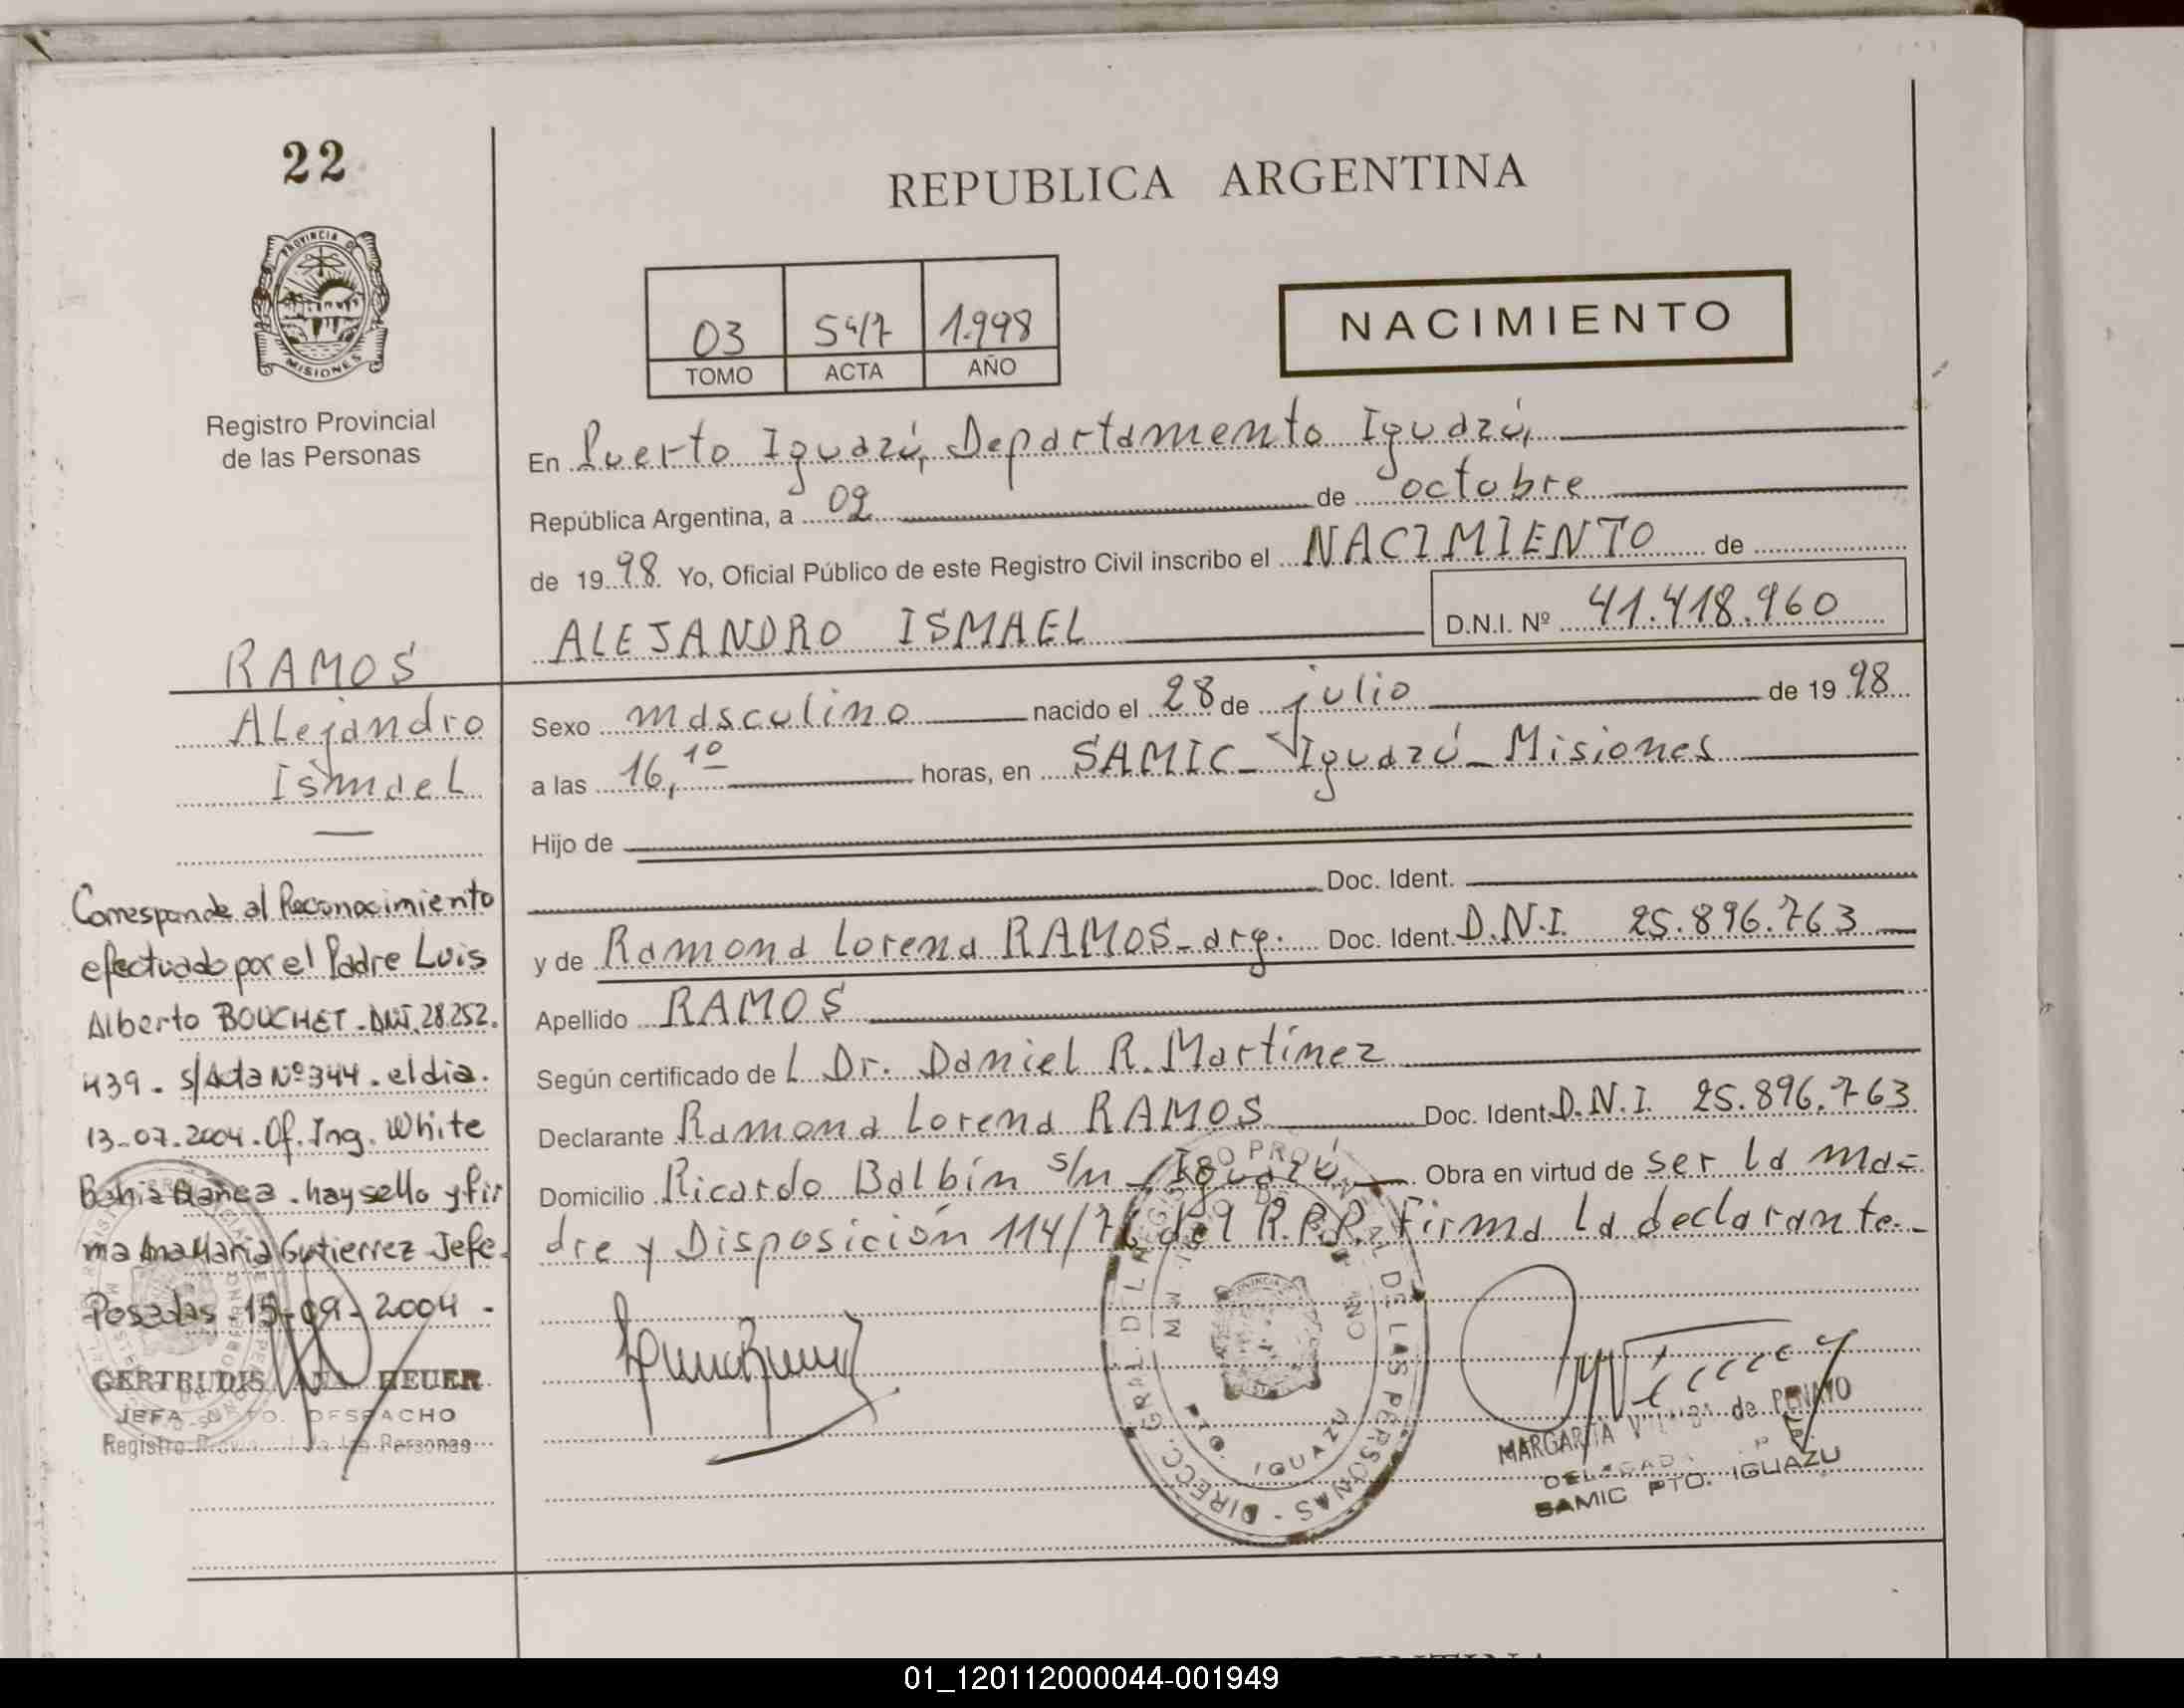 22
REPUBLICA ARGENTINA
PROVINCIA DE
MISIONES
Registro Provincial
de las Personas
03 547 1.998
TOMO ACTA AÑO
NACIMIENTO
En Puerto Iguazú, Departamento Iguazú,
República Argentina, a 02 de octubre
de 1998 Yo, Oficial Público de este Registro Civil inscribo el NACIMIENTO de
ALEJANDRO ISMAEL D.N.I. Nº 41.418.960
RAMOS
Alejandro
Ismael
Sexo masculino nacido el 28 de julio de 1998
a las 16,10 horas, en SAMIC - Iguazú - Misiones
Hijo de
Doc. Ident.
y de Ramona Lorena RAMOS - arg. Doc. Ident. D.N.I. 25.896.763
Apellido RAMOS
Según certificado del Dr. Daniel R. Martínez
Declarante Ramona Lorena RAMOS Doc. Ident. D.N.I. 25.896.763
Domicilio Ricardo Balbín s/n - Iguazú Obra en virtud de ser la ma=
dre y Disposición 114/76 del R.P.P. Firma la declarante.-
Corresponde al Reconocimiento
efectuado por el Padre Luis
Alberto BOUCHET - DNI. 28.252.
439 - s/Acta Nº 344 - el dia.
13-07-2004 - Of. Ing. White
Bahia Blanca - hay sello y fir
ma Ana Maria Gutierrez - Jefe.
Posadas 15-09-2004 -
GERTRUDIS ANA HEUER
JEFA DPTO. DESPACHO
Registro Provincial de las Personas
DIRECC. GRAL. DEL REGISTRO PROVINCIAL DE LAS PERSONAS
PTO. IGUAZU
MARGARITA de PENAYO
DELEGADA
SAMIC PTO. IGUAZU
01_120112000044-001949